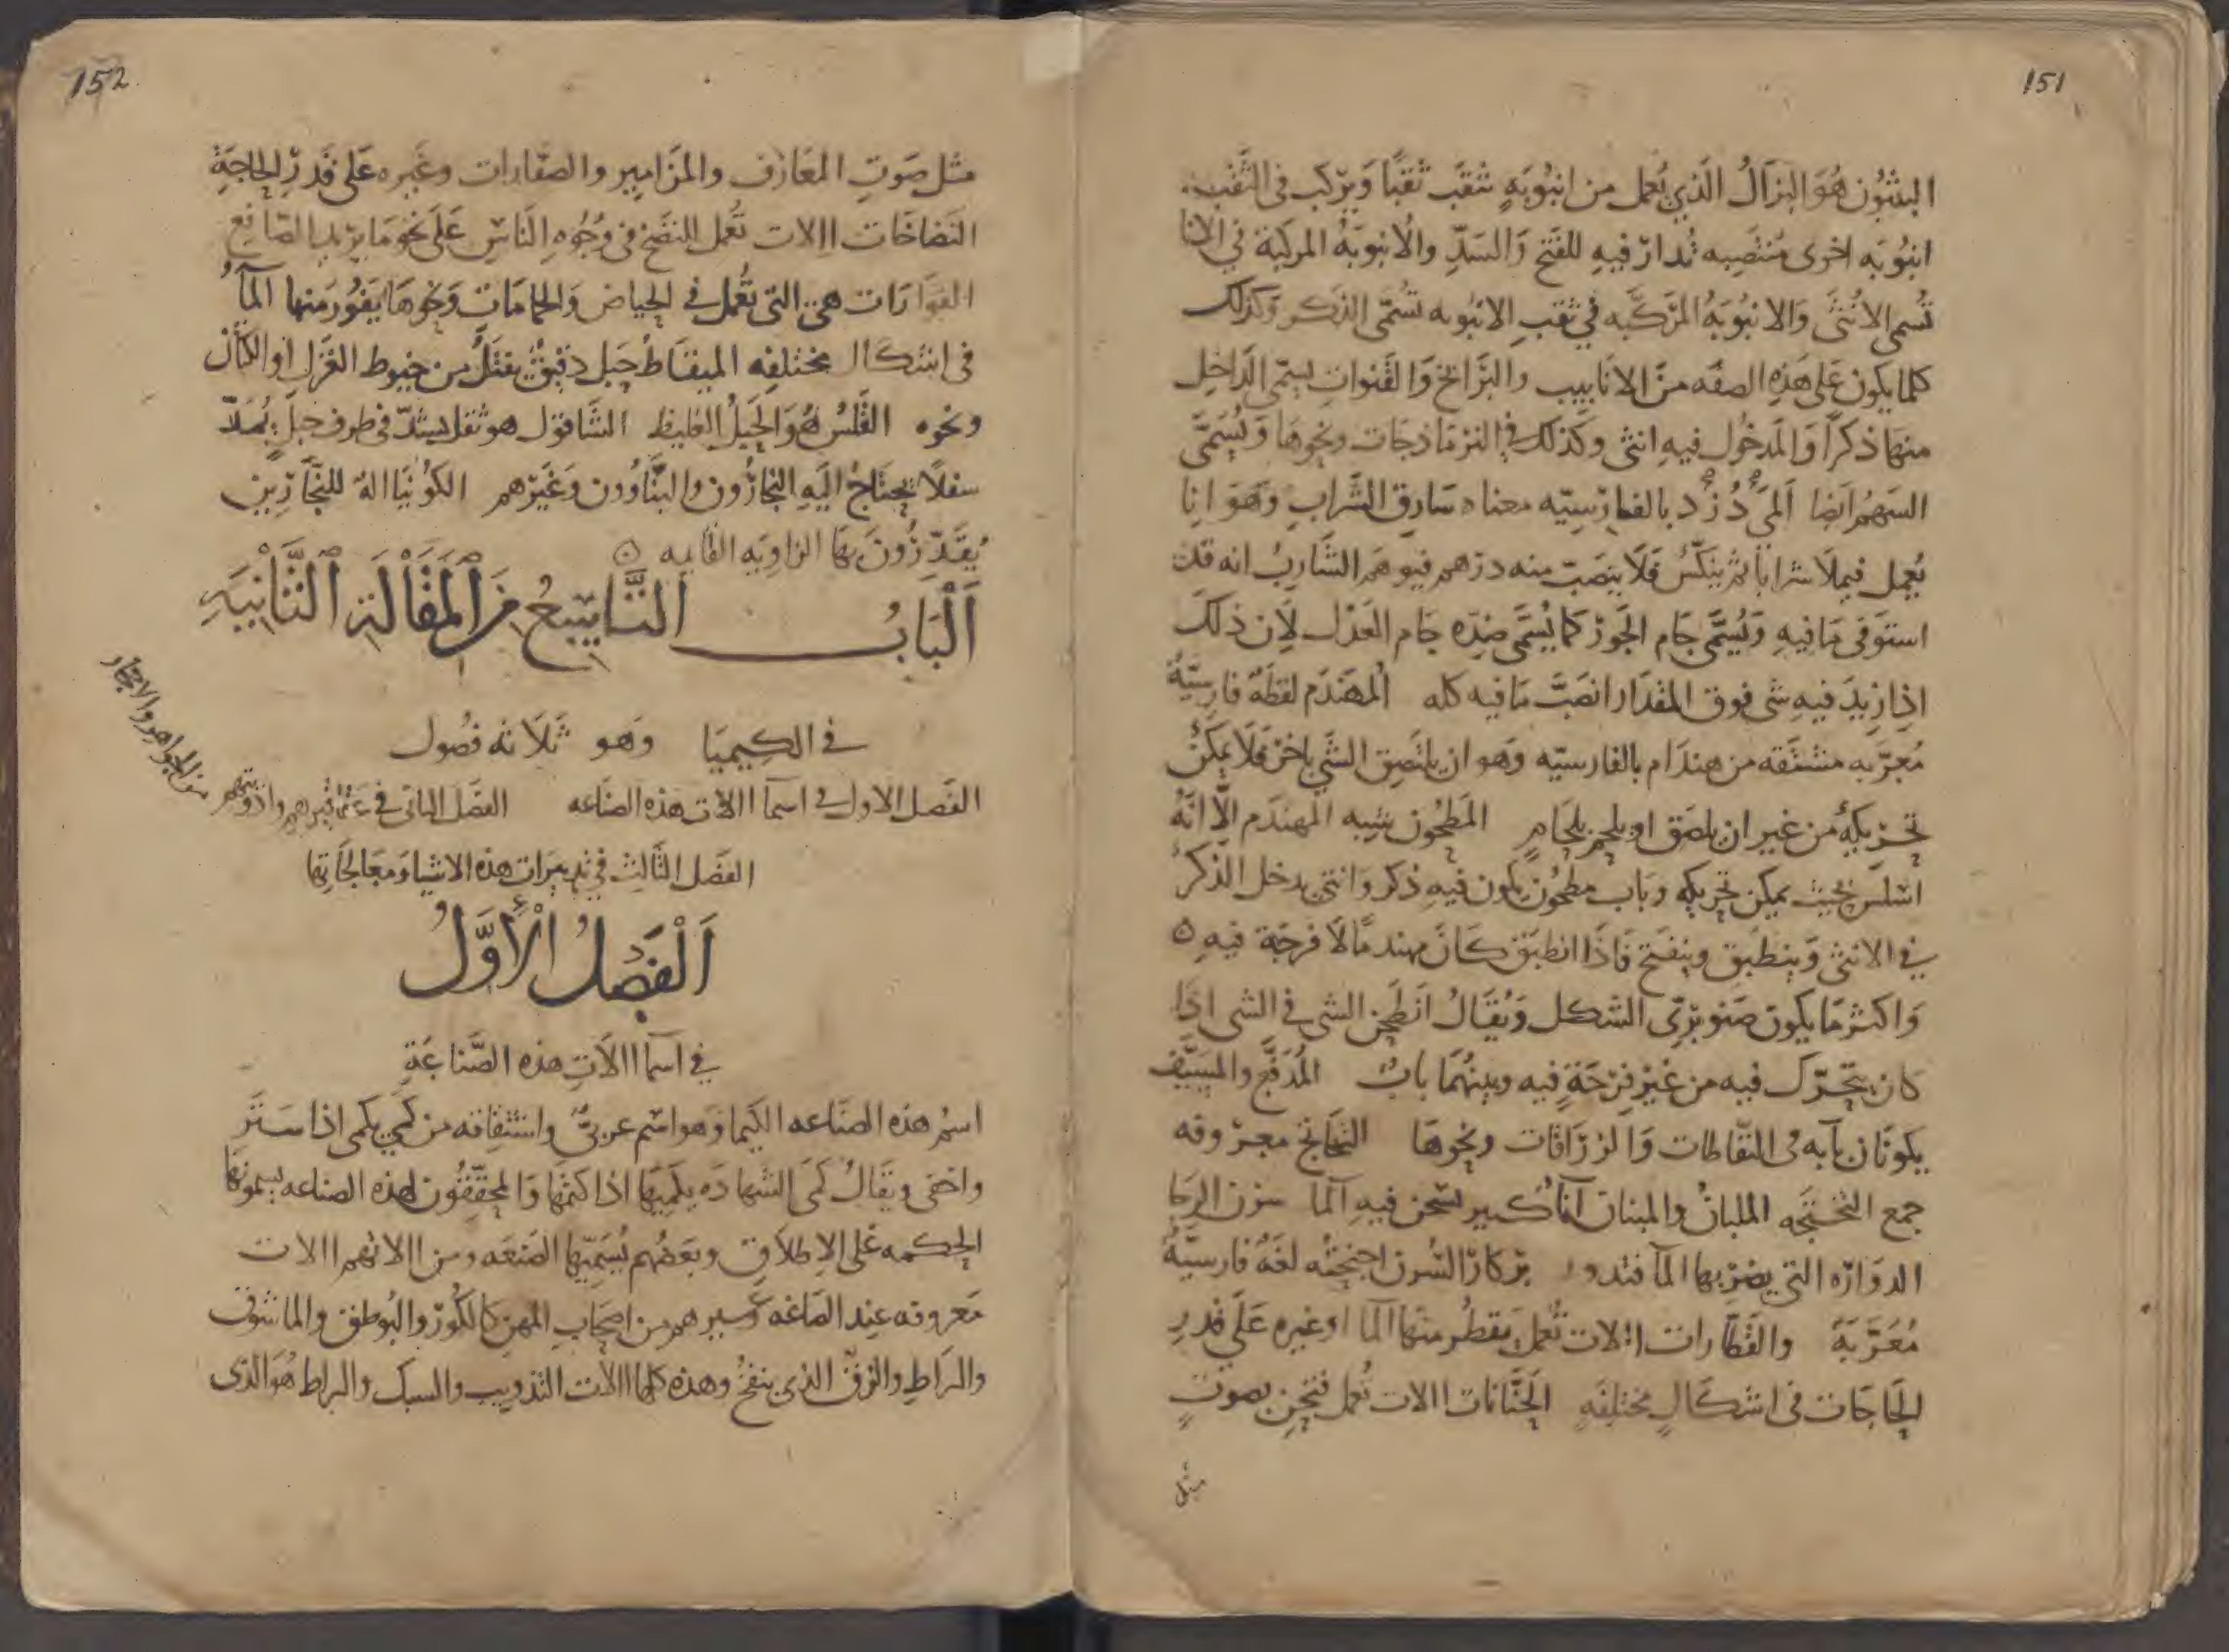 151
البثيون هُوَ البزالُ الّذي يُعمل من انبُوبَةٍ تثقَب ثقبًا وَيرّكب فى الثقب
انبُوبَه اخرى مُنتَصِبه تُدارْ فيهِ للفَتح وَالسَدِّ والانبوبَةُ المركبَة في الانا
تُسمى الانُثَى وَالانبُوبَةُ المرّكبَه في ثقبِ الانبُوبه تُسَمّى الذكر وَكذلك
كلما يكون عَلى هَذِهِ الصفَه منَ الانابيب والبَرَابخ وَالقنوات يسمّى الدَاخِل
منهَا ذكرًا وَالمدخُول فيهِ انثى وَكذلك فى النرماذجَات ونحوهَا وَيُسَمّى
السَهمُ ايَضا المَى دُزْد بالفارْسِيّه معناه سَارِق الشَراب وَهوَ انا
يُعمل فيملا شرابا ثم ينكسُ فَلا ينصَبّ منه درْهم فيوهم الشَاربُ انه قد
استوَفى مَا فيهِ وَيُسَمّى جَام الجَورْ كما يُسَمّى ضِدّه جَام العَدْل لاَن ذلكَ
اذا زِيدَ فيهِ شى فوق المقدَار انصَبَّ مَا فيه كله المُهَندَم لفظَةٌ فارِسيّةٌ
مُعرّبه مشتقه من هندَام بالفارسيّه وَهو ان يلتَصِق الشَي باخرْ فلا يمكنُ
تحرْيكهُ من غير ان يلصَق او يلحم بلحَامٍ المَطحُون شبيه المهندَم الّا انَّهُ
اسْلسَ بحيث يمكن تحريكه وبَاب مطحُون يكون فيهِ ذكر وَانثى يدخل الذَكرُ
في الانثى وَينطَبق وينفتح فَاذَا انطبَق كانَ مهندمًا لَا فرجَة فيهِ ه
وَاكثرْ مَا يكون صَنوبَرْىّ الشكل وَيُقَالُ انطَحَن الشى في الشى اذَا
كان يتحرّك فيه من غيرْ فرْجَةٍ فيه وبينهُمَا بابٌ
يكونان بآبه فى النفّاطات وَالزرّاقات ونحوهَا التخَاتج معرْوفه
جمع التختجَه الملبانُ والمبنان اناءٌ كبير يسخن فيهِ المآ
الدوَارّه التي يضرْبها المآ فتدور برْكارْ لغَةٌ فارسيّةٌ
مُعَرَّبَةً والقطّارات الات تُعمل يقطُر منها المآ او غيره عَلَى قدرِ
الحَاجَات فى اشكالٍ مختلِفَهٍ الحَنَّانات الات تعُمل فتحِن بصَوتٍ
مثل
152
مثل صَوتِ المعَازف والمزَامير والصفّارات وغَيره عَلى قدرْ الحاجَةِ
النضاخَات الالات تُعمل للنضَخ فى وُجُوهِ النّاسِ عَلَى نحو مَا يرْيد الصَانِع
الفوَارَات هى التى تُعمل في الحياض وَالحمامَات وَنحوهَا يَفُور منها المآءُ
فى اشكال مختلفه الميقاط حَبل دقيقٌ يفتل من خيوط الغَزل او الكتان
ونحوه القَلْسُ هُوَ الحَبلُ الغليظ الشاقول هو ثقل يشدّ فى طرف حبل يُمدّ
سفلًا يحتَاجُ اليَهِ النجارُّون والبنَاوُون وَغيرْهم الكوُنيَا الة للنجّارْين
يُقدّرْونَ بهَا الزاويَه القايمه ه
اَلْبَابُ التَّاسِعُ مِنَ اَلْمَقَالَةِ الثَّانِيَةِ
في الكيميَا وَهو ثَلاثه فصُول
الفَصل الاول فى اسمآ الات هذه الصنَاعه الفصَل الثانى في عقاقيرهم وادويتهم
من الجواهر والاحجار
الفصَل الثالِث في تدبيرَات هذه الاشيا وَمعَالجاتِها
اَلْفَصلُ الْأَوَّلُ
في اسمآ الآت هذه الصَّناعَةِ
اسمُ هذه الصناعه الكَيميا وَهو اسم عربىٌّ واشتقاقه من كمى يكمى اذا سَتَر
واخفى ويقالُ كَمَى الشهادَه يكميها اذا كتمَهَا وَالمحقّقُون لهذه الصناعه يسمونهَا
الحكمه عَلى الاطلَاق وبعَضُهم يُسَمّيهَا الصَنعَه ومن الاتهم الات
مَعروفه عِند الصَاغه وغيرهم من اصحَابِ المهن كالكُورْ والبوُطق والماشوق
والرَاط والزقّ الذى ينفخُ وهذه كلها الات التذويب والسبك والراط هُوَ الذى